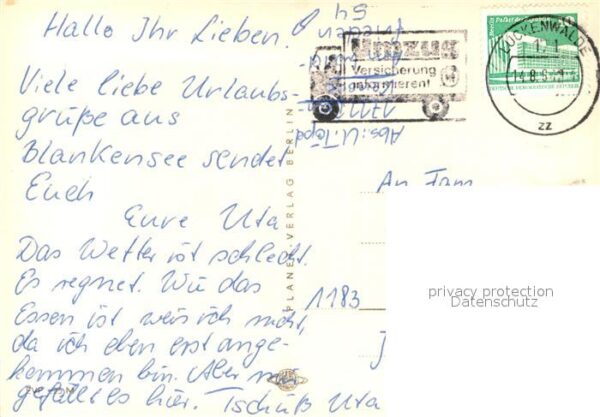 Hallo Ihr Lieben!
Viele liebe Urlaubs-
grüße aus
Blankensee sendet
Euch
Eure Uta
Das Wetter ist schlecht.
Es regnet. Wie das
Essen ist weis ich nicht,
da ich eben erst ange-
kommen bin. Aber mir
gefällt es hier. Tschüß Uta
Abs: U.
54
Umzug
Versicherung
informieren!
LUCKENWALDE
14.8.
ZZ
DEUTSCHE DEMOKRATISCHE REPUBLIK
PLANET-VERLAG BERLIN
An Fam.
1183
privacy protection
Datenschutz